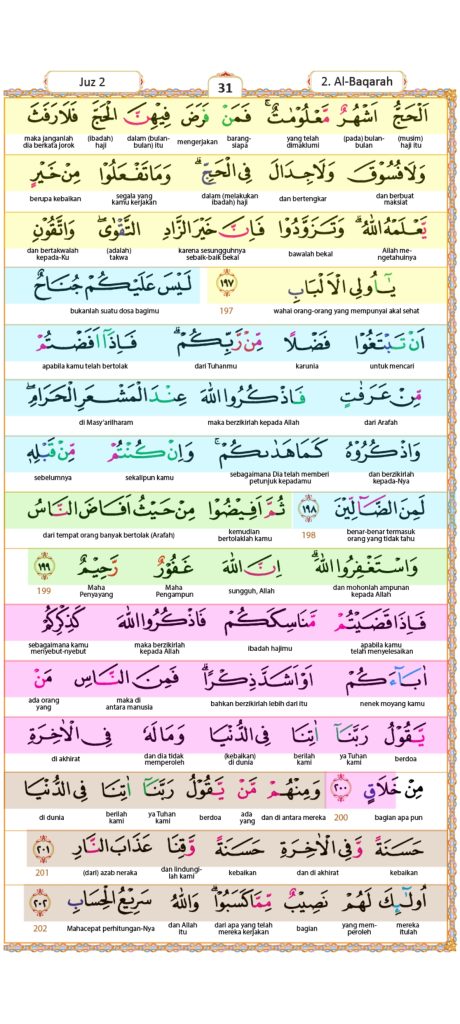 Juz 2
31
2. Al-Baqarah
اَلْحَجُّ اَشْهُرٌ مَّعْلُوْمٰتٌ ۚ فَمَنْ فَرَضَ فِيْهِنَّ الْحَجَّ فَلَا رَفَثَ
(musim) haji itu (pada) bulan-bulan yang telah dimaklumi barang-siapa mengerjakan dalam (bulan-bulan) itu (ibadah) haji maka janganlah dia berkata jorok
وَلَا فُسُوْقَ وَلَا جِدَالَ فِى الْحَجِّ ۗ وَمَا تَفْعَلُوْا مِنْ خَيْرٍ
dan berbuat maksiat dan bertengkar dalam (melakukan ibadah) haji segala yang kamu kerjakan berupa kebaikan
يَّعْلَمْهُ اللّٰهُ ۗ وَتَزَوَّدُوْا فَاِنَّ خَيْرَ الزَّادِ التَّقْوٰى ۖ وَاتَّقُوْنِ
Allah me-ngetahuinya bawalah bekal karena sesungguhnya sebaik-baik bekal (adalah) takwa dan bertakwalah kepada-Ku
يٰٓاُولِى الْاَلْبَابِ ١٩٧ لَيْسَ عَلَيْكُمْ جُنَاحٌ
wahai orang-orang yang mempunyai akal sehat 197 bukanlah suatu dosa bagimu
اَنْ تَبْتَغُوْا فَضْلًا مِّنْ رَّبِّكُمْ ۗ فَاِذَآ اَفَضْتُمْ
untuk mencari karunia dari Tuhanmu apabila kamu telah bertolak
مِّنْ عَرَفٰتٍ فَاذْكُرُوا اللّٰهَ عِنْدَ الْمَشْعَرِ الْحَرَامِ ۖ
dari Arafah maka berzikirlah kepada Allah di Masy'arilharam
وَاذْكُرُوْهُ كَمَا هَدٰىكُمْ ۚ وَاِنْ كُنْتُمْ مِّنْ قَبْلِهٖ
dan berzikirlah kepada-Nya sebagaimana Dia telah memberi petunjuk kepadamu sekalipun kamu sebelumnya
لَمِنَ الضَّاۤلِّيْنَ ١٩٨ ثُمَّ اَفِيْضُوْا مِنْ حَيْثُ اَفَاضَ النَّاسُ
benar-benar termasuk orang yang tidak tahu 198 kemudian bertolaklah kamu dari tempat orang banyak bertolak (Arafah)
وَاسْتَغْفِرُوا اللّٰهَ ۗ اِنَّ اللّٰهَ غَفُوْرٌ رَّحِيْمٌ ١٩٩
dan mohonlah ampunan kepada Allah sungguh, Allah Maha Pengampun Maha Penyayang 199
فَاِذَا قَضَيْتُمْ مَّنَاسِكَكُمْ فَاذْكُرُوا اللّٰهَ كَذِكْرِكُمْ
apabila kamu telah menyelesaikan ibadah hajimu maka berzikirlah kepada Allah sebagaimana kamu menyebut-nyebut
اٰبَاۤءَكُمْ اَوْ اَشَدَّ ذِكْرًا ۗ فَمِنَ النَّاسِ مَنْ
nenek moyang kamu bahkan berzikirlah lebih dari itu maka di antara manusia ada orang yang
يَّقُوْلُ رَبَّنَآ اٰتِنَا فِى الدُّنْيَا وَمَا لَهٗ فِى الْاٰخِرَةِ
berdoa ya Tuhan kami berilah kami (kebaikan) di dunia dan dia tidak memperoleh di akhirat
مِنْ خَلَاقٍ ٢٠٠ وَمِنْهُمْ مَّنْ يَّقُوْلُ رَبَّنَآ اٰتِنَا فِى الدُّنْيَا
bagian apa pun 200 dan di antara mereka ada yang berdoa ya Tuhan kami berilah kami di dunia
حَسَنَةً وَّفِى الْاٰخِرَةِ حَسَنَةً وَّقِنَا عَذَابَ النَّارِ ٢٠١
kebaikan dan di akhirat kebaikan dan lindungi-lah kami (dari) azab neraka 201
اُولٰۤىِٕكَ لَهُمْ نَصِيْبٌ مِّمَّا كَسَبُوْا ۗ وَاللّٰهُ سَرِيْعُ الْحِسَابِ ٢٠٢
mereka itulah yang mem-peroleh bagian dari apa yang telah mereka kerjakan dan Allah itu Mahacepat perhitungan-Nya 202